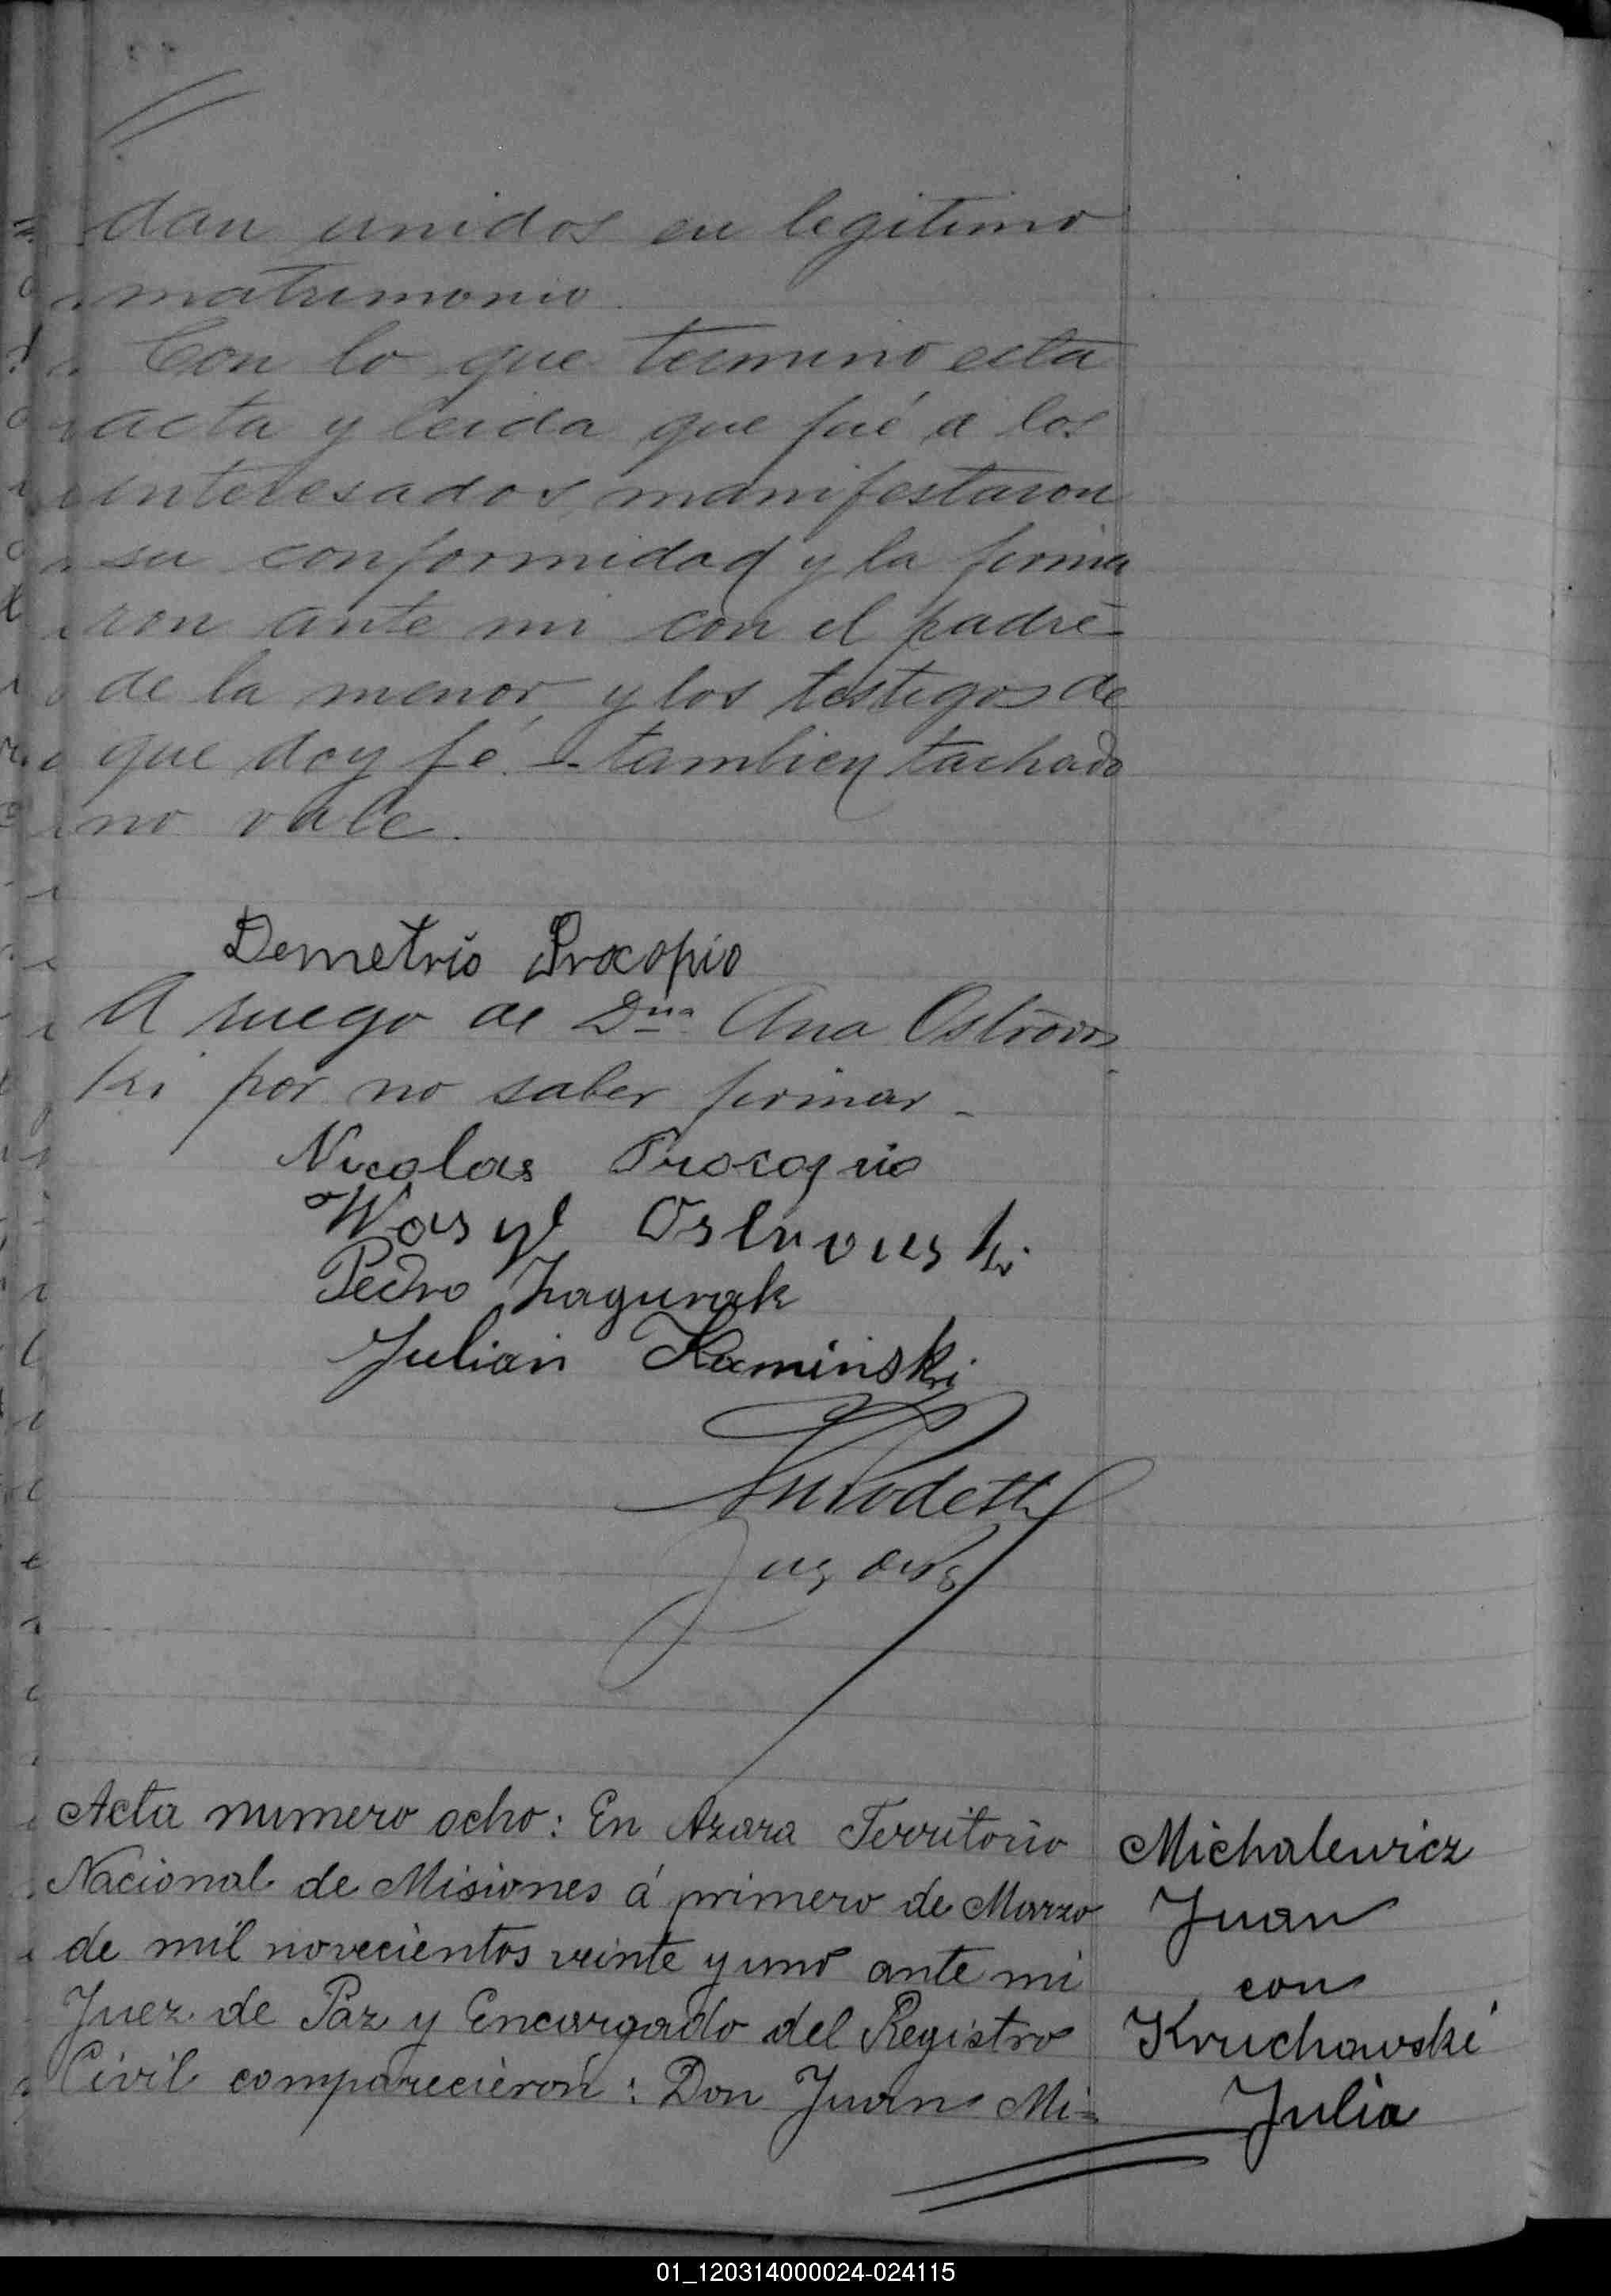 dan unidos en legitimo
matrimonio.
Con lo que termino esta
acta y leida que fué a los
interesados, manifestaron
su conformidad y la firma
ron ante mi con el padre
de la menor, y los testigos de
que doy fé. - tambien tachado
no vale.
Demetrio Procopio
A ruego de Dña Ana Ostrovs
ki por no saber firmar -
Nicolas Procopio
Wasyl Ostrowski
Pedro Zagurak
Julian Kaminski
Juez de Paz
Acta numero ocho: En Azara Territorio
Nacional de Misiones á primero de Marzo
de mil novecientos veinte y uno ante mi
Juez de Paz y Encargado del Registro
Civil comparecieron: Don Juan Mi=
Michalewicz
Juan
con
Kruchowski
Julia
01_120314000024-024115